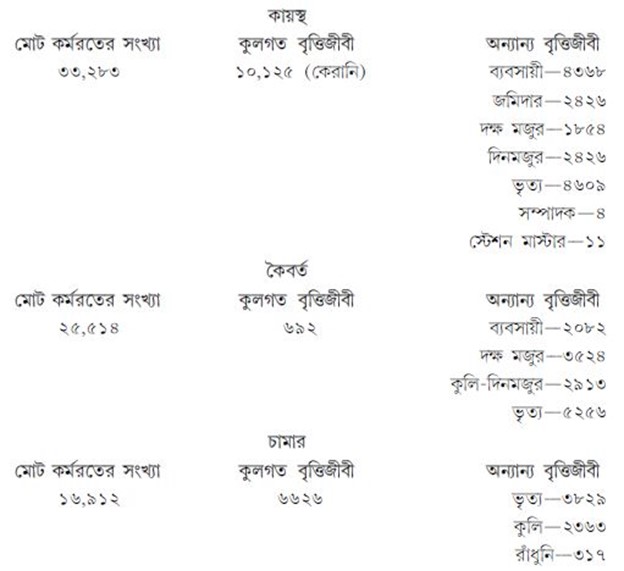 কায়স্থ
মোট কর্মরতের সংখ্যা কুলগত বৃত্তিজীবী অন্যান্য বৃত্তিজীবী
৩৩,২৮৩ ১০,১২৫ (কেরানি) ব্যবসায়ী—৪৩৬৮
জমিদার—২৪২৬
দক্ষ মজুর—১৮৫৪
দিনমজুর—২৪২৬
ভৃত্য—৪৬০৯
সম্পাদক—৪
স্টেশন মাস্টার—১১
কৈবর্ত
মোট কর্মরতের সংখ্যা কুলগত বৃত্তিজীবী অন্যান্য বৃত্তিজীবী
২৫,৫১৪ ৬৯২ ব্যবসায়ী—২০৮২
দক্ষ মজুর—৩৫২৪
কুলি-দিনমজুর—২৯১৩
ভৃত্য—৫২৫৬
চামার
মোট কর্মরতের সংখ্যা কুলগত বৃত্তিজীবী অন্যান্য বৃত্তিজীবী
১৬,৯১২ ৬৬২৬ ভৃত্য—৩৮২৯
কুলি—২৩৬৩
রাঁধুনি—৩১৭